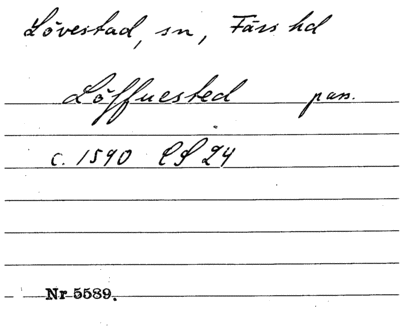 Lövestad, sn, Färs hd
Löffuested pan.
c. 1590 LS 24
Nr 5589.